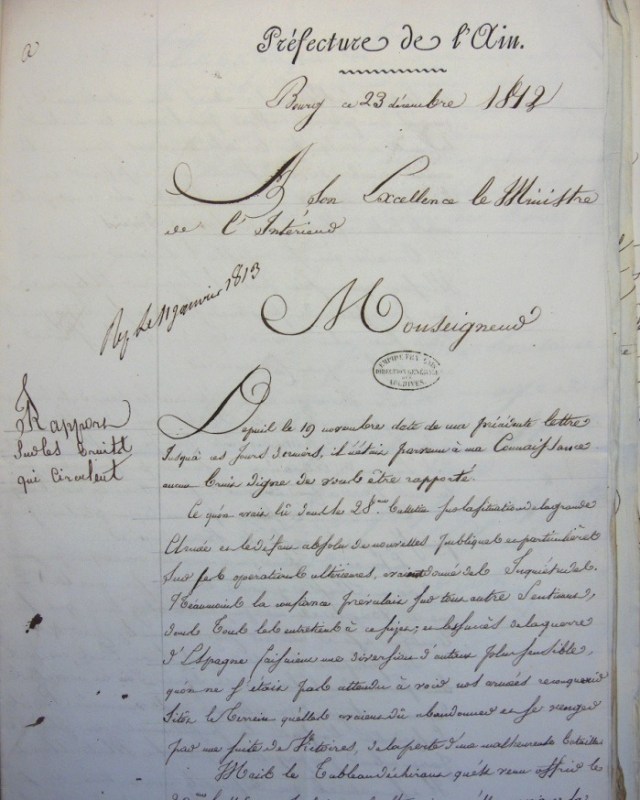 Préfecture de l'Ain.
Bourg ce 23 décembre 1812
A Son Excellence le Ministre
de l'Intérieur
Rep. le 11 janvier 1813
Monseigneur
EMPIRE FRANÇAIS
DIRECTION GENERALE
DES
ARCHIVES
Rapport
Sur les bruits
qui Circulent
Depuis le 19 novembre date de ma précédente lettre
Jusqu'à ces jours derniers, il n'était parvenu à ma Connaissance
aucun bruit digne de vous être rapporté.
Ce qu'on avait lû dans le 28.me bulletin sur la situation de la grande
Armée et le défaut absolu de nouvelles publiques et particulières
Sur ses opérations ultérieures, avaient donné des Inquiétudes.
Néanmoins la confiance prévalait sur tous autre Sentiment,
dans tous les entretiens à ce sujet; et les succès de la guerre
d'Espagne faisaient une diversion d'autant plus sensible,
qu'on ne s'était pas attendu à voir nos armées reconquérir
sitôt le terrein qu'elles avaient dû abandonner et se venger
par une suite de Victoires, de la perte d'une malheureuse bataille
Mais le Tableau déchirant qu'est venu offrir le